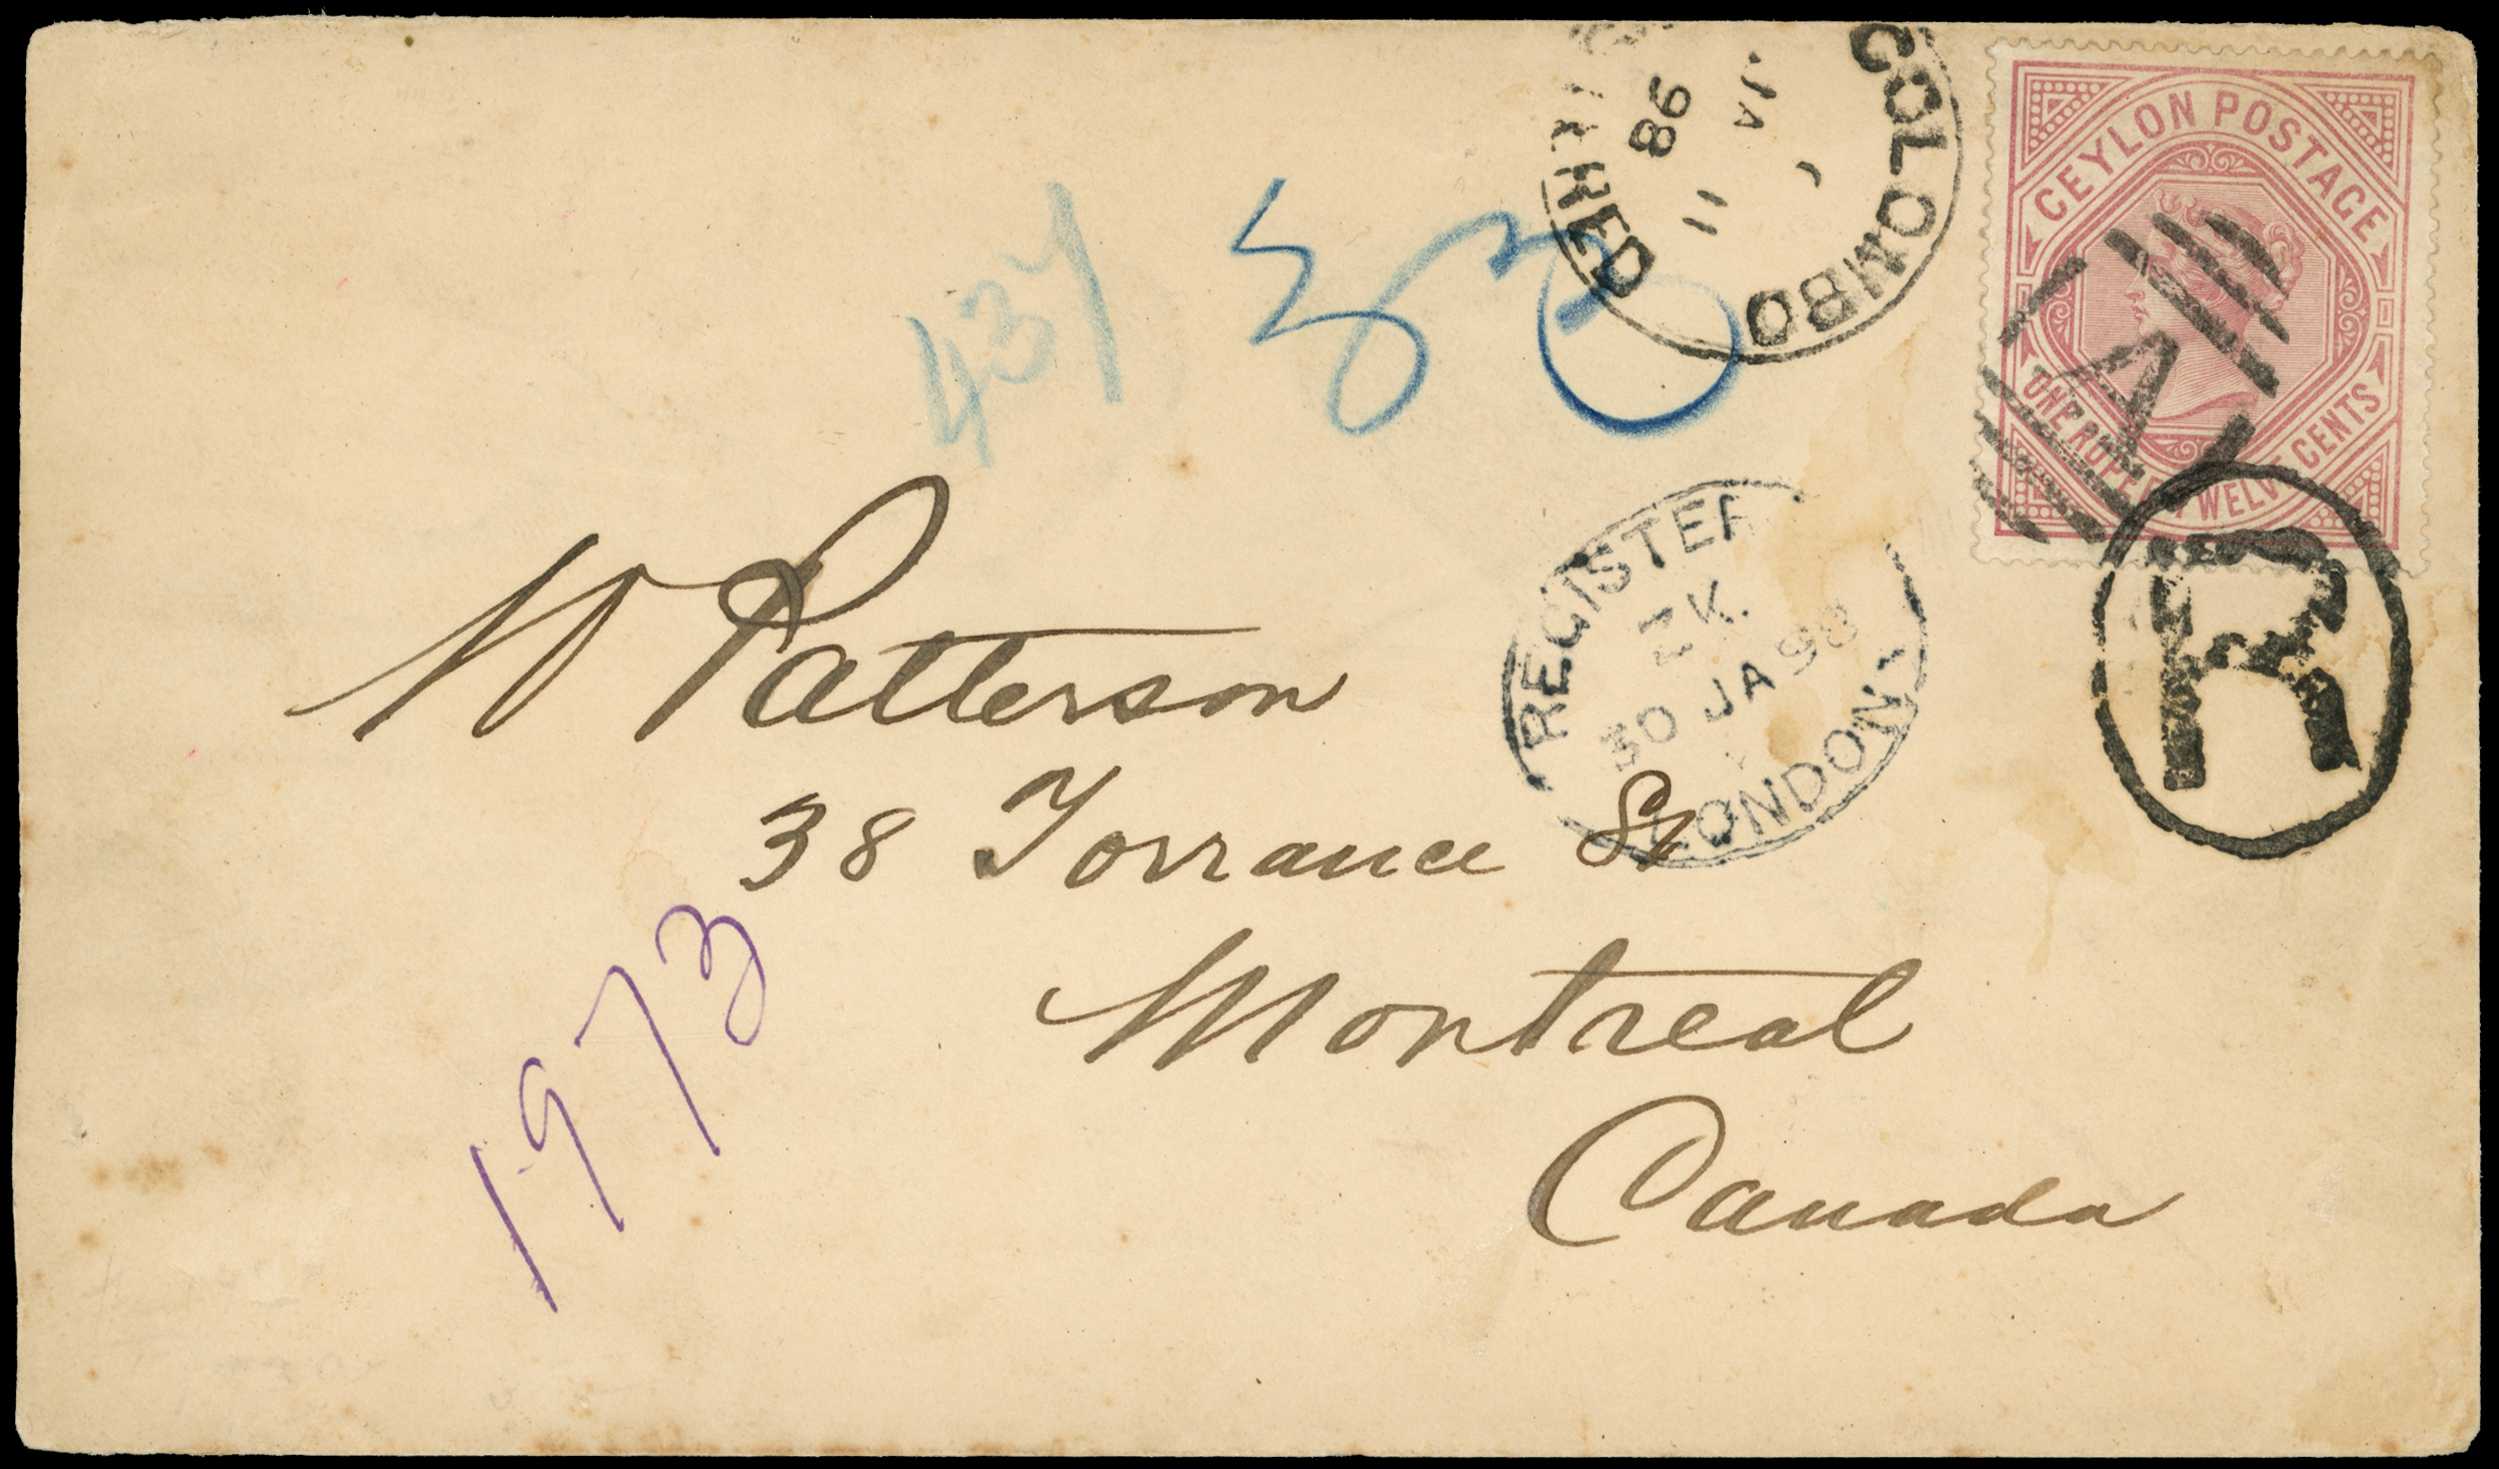 COLOMBO
JA 11
98
CEYLON POSTAGE
ONE RUPEE TWELVE CENTS
A
R
437
REGISTER
ZK.
30 JA 98
LONDON
W Patterson
38 Torrance St
Montreal
Canada
1973